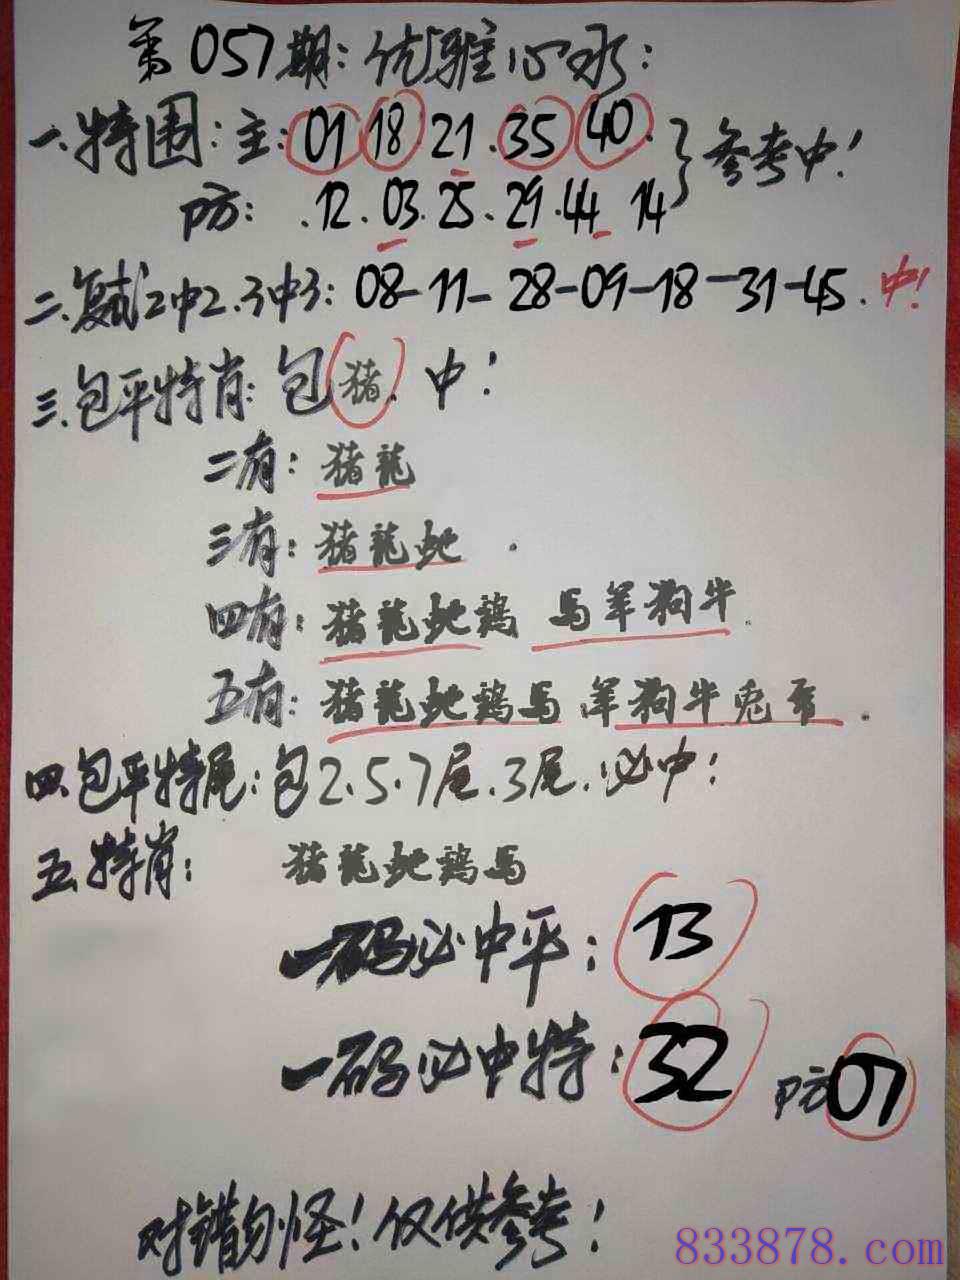 第057期:优雅心水:
一.特围:主:01 18 21.35 40.}参考中!
防:.12.03.25.29.44 14
二.复式2中2.3中3:08-11-28-09-18-31-45.中!
三.包平特肖:包猪.中!
二有:猪龍
三有:猪龍蛇.
四有:猪龍蛇鷄 馬羊狗牛.
五有:猪龍蛇鷄馬.羊狗牛兎.
四.包平特尾:包2.5.7尾.3尾.必中!
五.特肖:猪龍蛇鷄馬
一码必中平:13
一码必中特:32 防07
对错勿怪!仅供参考!
833878.com